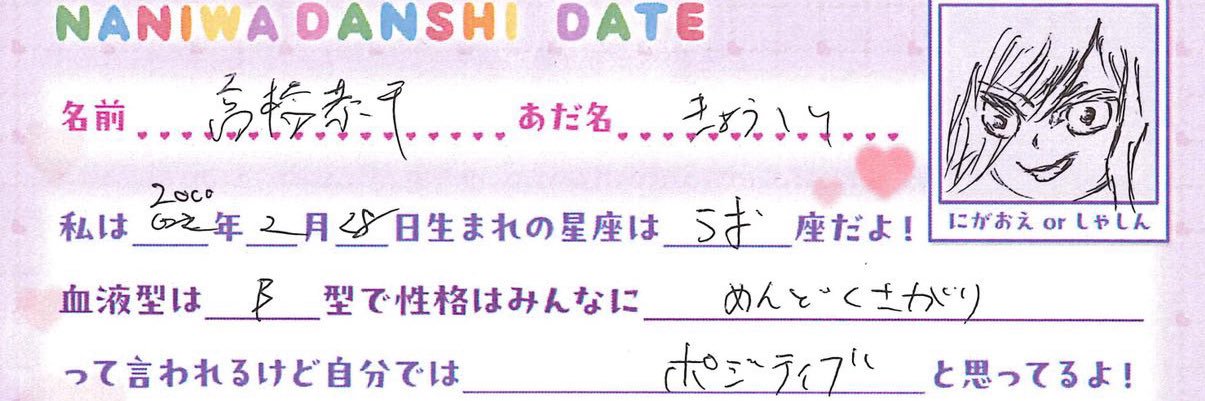 NANIWA DANSHI DATE
名前 高橋恭平 あだ名 きょうへい
私は 2000年 2月 28日生まれの星座は うお 座だよ!
にがおえ or しゃしん
血液型は B 型で性格はみんなに めんどくさがり
って言われるけど自分では ポジティブ と思ってるよ!